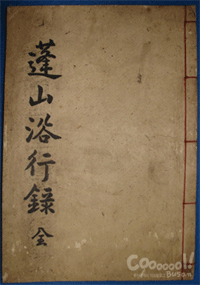 蓬山浴行錄 全
Cooooool!
Busan